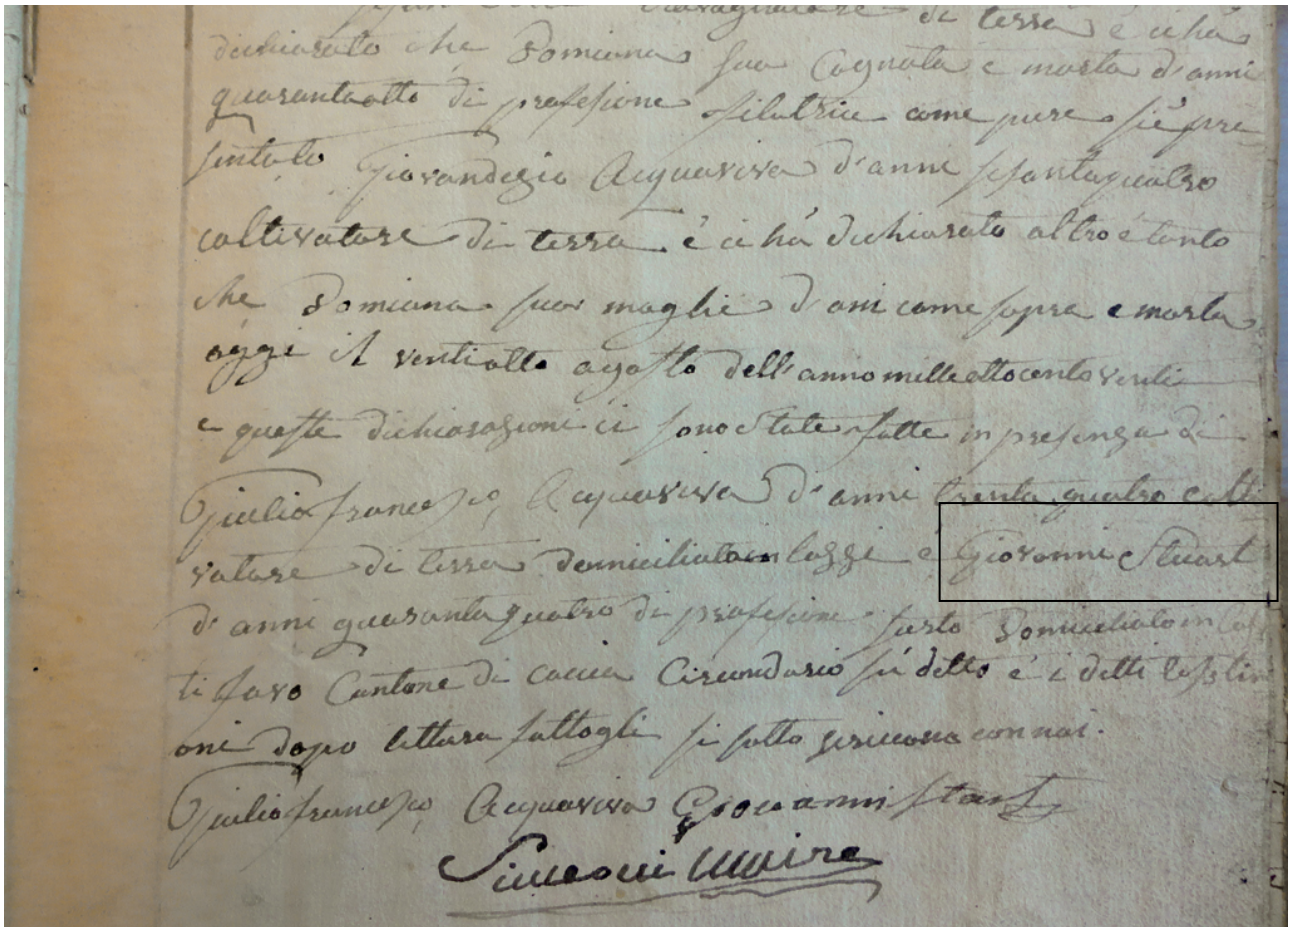 di terra e ci ha
dichiarato che Domiana sua Cognata e morta d'anni
quarantaotto di profesione filatrice come pure si è pre
sentato Giovandegio Acquaviva d'anni sesantaquatro
coltivatore di terra è ci ha dichiarato altro è tanto
che Domiana sua moglie d'ani come sopra e morta
oggi il ventiotto agosto dell'anno mille ottocento venti
e queste dichiarazioni ci sono State fatte in presenza di
Giulio francesco Acquaviva d'anni trenta quatro colti
vatore di terra domiciliato in lozzi e Giovanni Stuart
d'anni quaranta quatro di profesione sarto Domiciliato in
ti favo Cantone di caccia Circondario su detto è i detti testim
oni dopo lettura fattogli si sotto con noi.
Giulio francesco Acquaviva Giovanni Stuart
Simeoni Maire